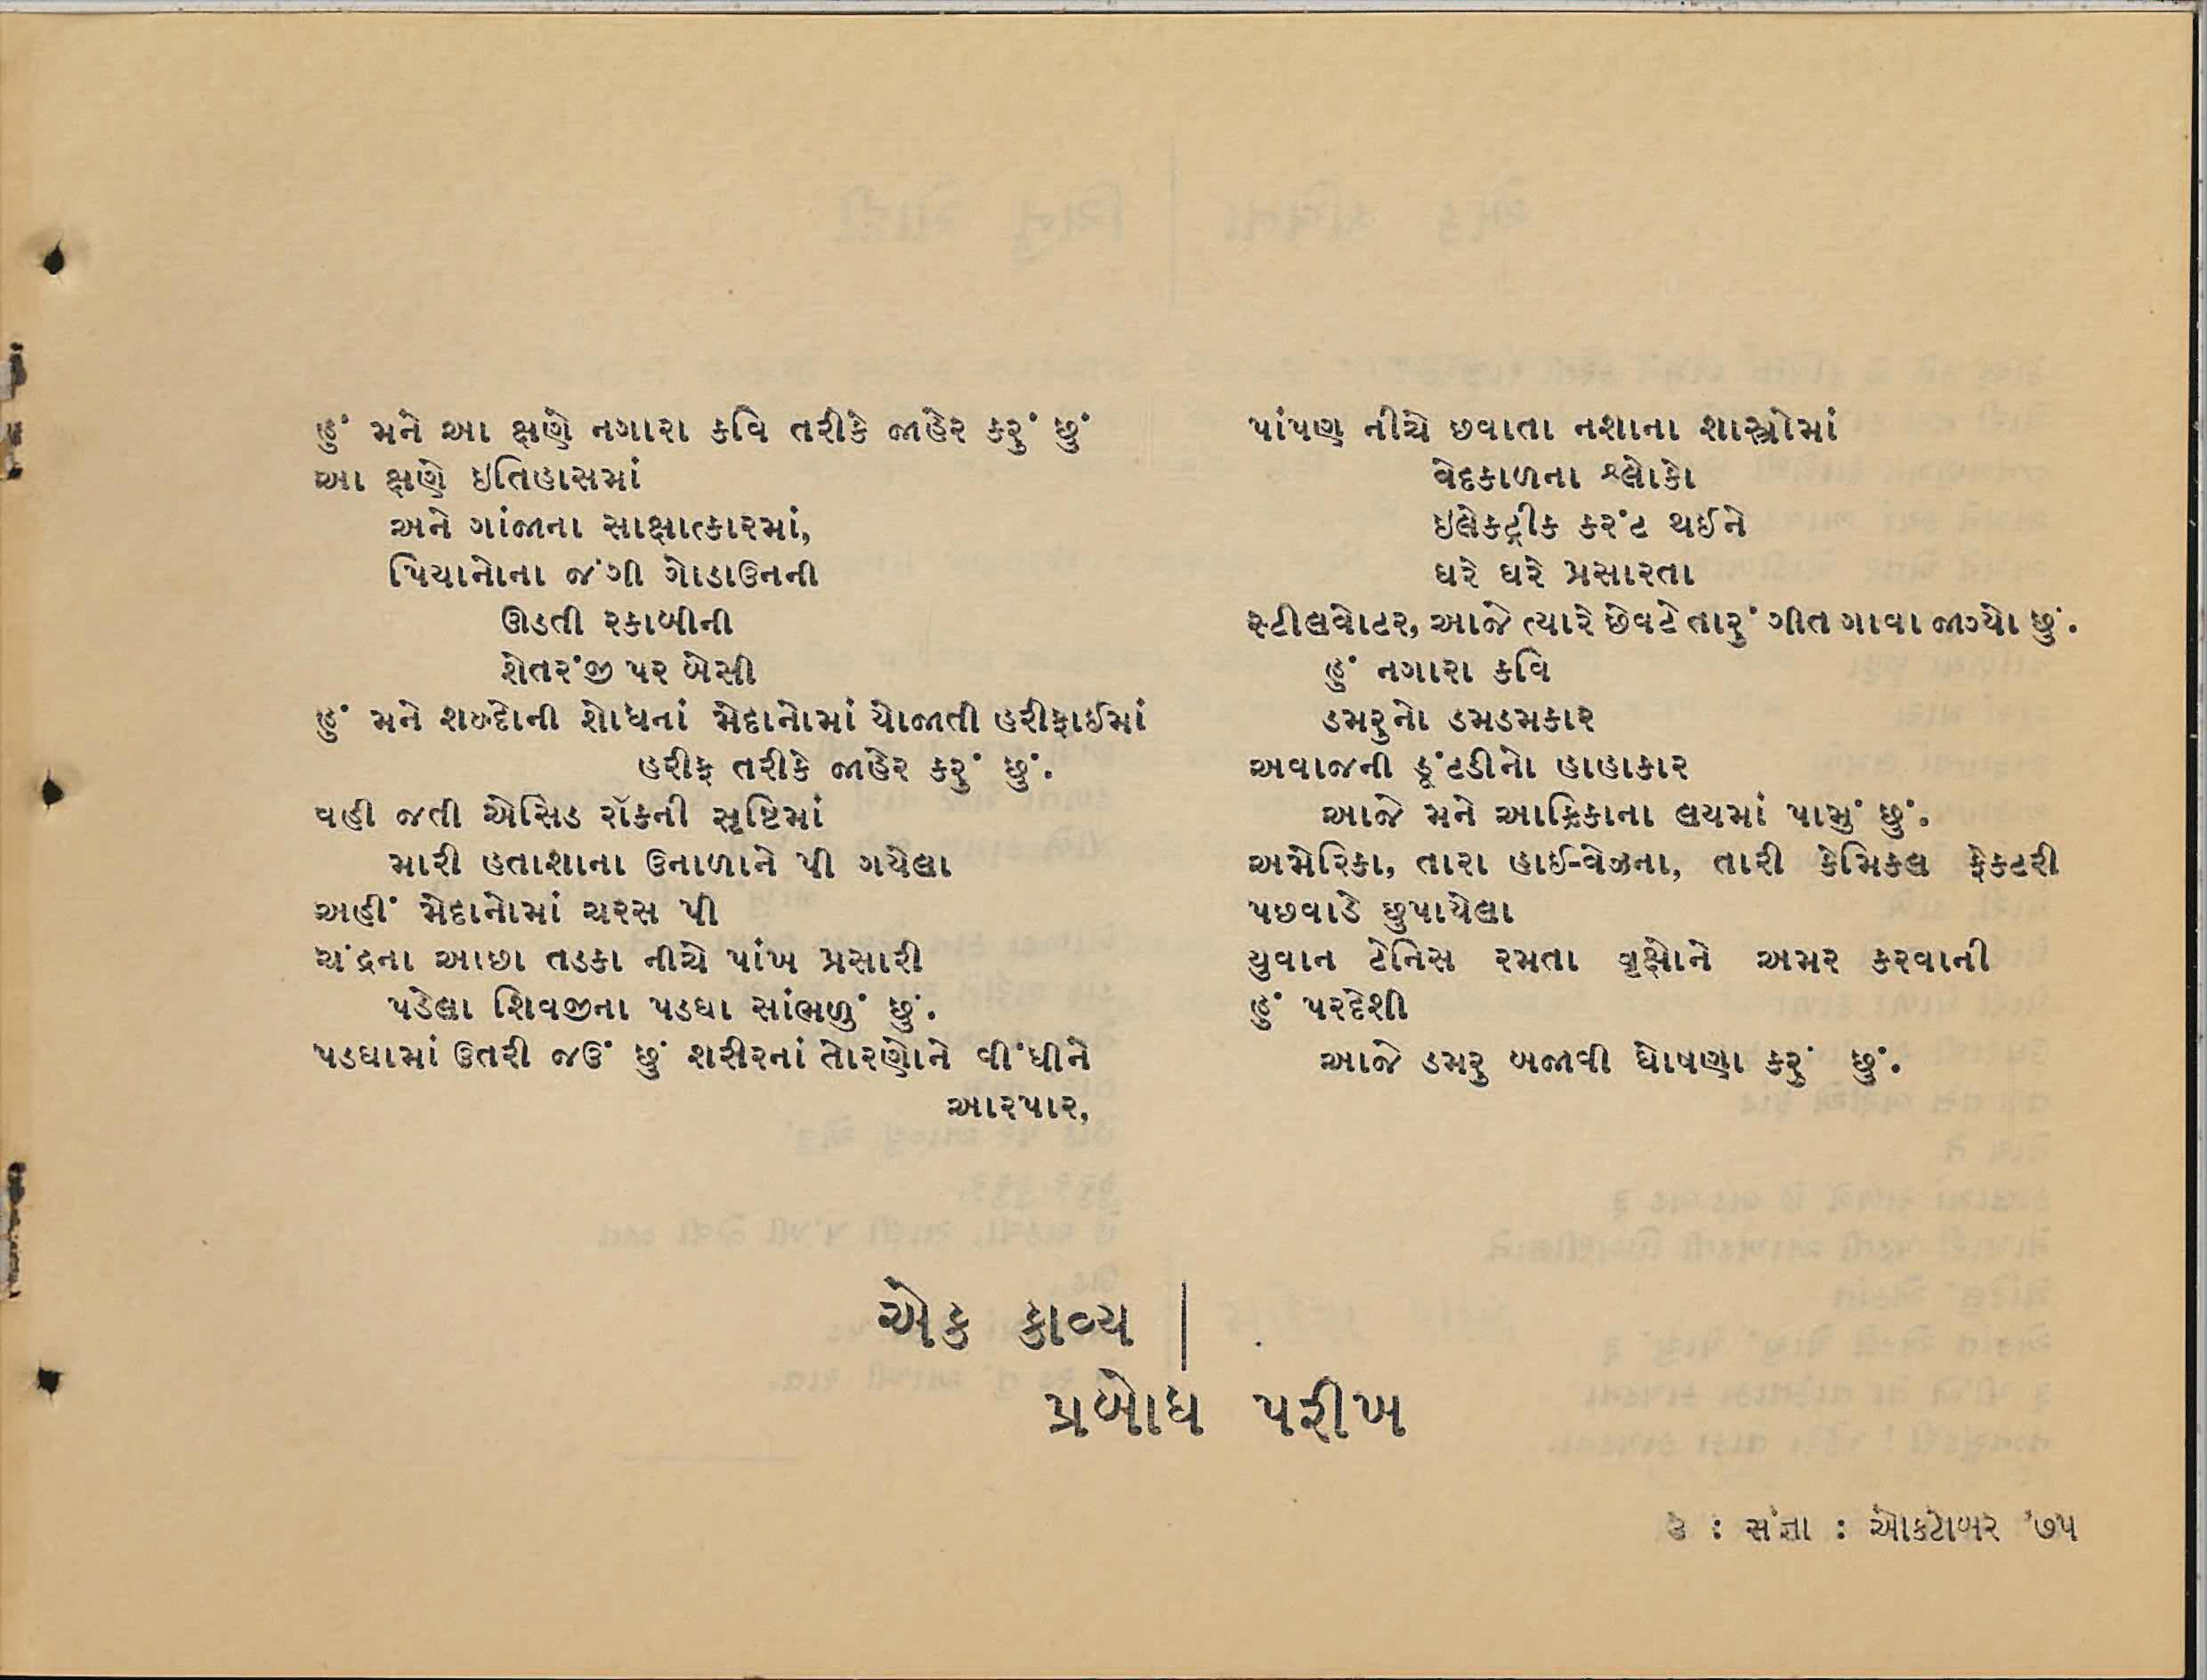 હું મને આ ક્ષણે નગારા કવિ તરીકે જાહેર કરું છું
આ ક્ષણે ઇતિહાસમાં
અને ગાંજાના સાક્ષાત્કારમાં,
પિયાનોના જંગી ગોડાઉનની
ઊડતી રકાબીની
શેતરંજી પર બેસી
હું મને શબ્દોની શોધનાં મેદાનોમાં યોજાતી હરીફાઈમાં
હરીફ તરીકે જાહેર કરું છું.
વહી જતી એસિડ રૉકની સૃષ્ટિમાં
મારી હતાશાના ઉનાળાને પી ગયેલા
અહીં મેદાનોમાં ચરસ પી
ચંદ્રના આછા તડકા નીચે પાંખ પ્રસારી
પડેલા શિવજીના પડઘા સાંભળું છું.
પડઘામાં ઉતરી જઉં છું શરીરનાં તોરણોને વીંધીને
આરપાર,
પાંપણ નીચે છવાતા નશાના શાસ્ત્રોમાં
વેદકાળના શ્લોકો
ઇલેક્ટ્રીક કરંટ થઈને
ઘરે ઘરે પ્રસારતા
સ્ટીલવોટર, આજે ત્યારે છેવટે તારું ગીત ગાવા જાગ્યો છું.
હું નગારા કવિ
ડમરુનો ડમડમકાર
અવાજની ડૂંટડીનો હાહાકાર
આજે મને આફ્રિકાના લયમાં પામું છું.
અમેરિકા, તારા હાઈ-વેઝના, તારી કેમિકલ ફેકટરી
પછવાડે છુપાયેલા
યુવાન ટેનિસ રમતા વૃક્ષોને અમર કરવાની
હું પરદેશી
આજે ડમરુ બજાવી ઘોષણા કરું છું.
એક કાવ્ય |
પ્રબોધ પરીખ
૩ : સંજ્ઞા : ઓક્ટોબર '૭૫